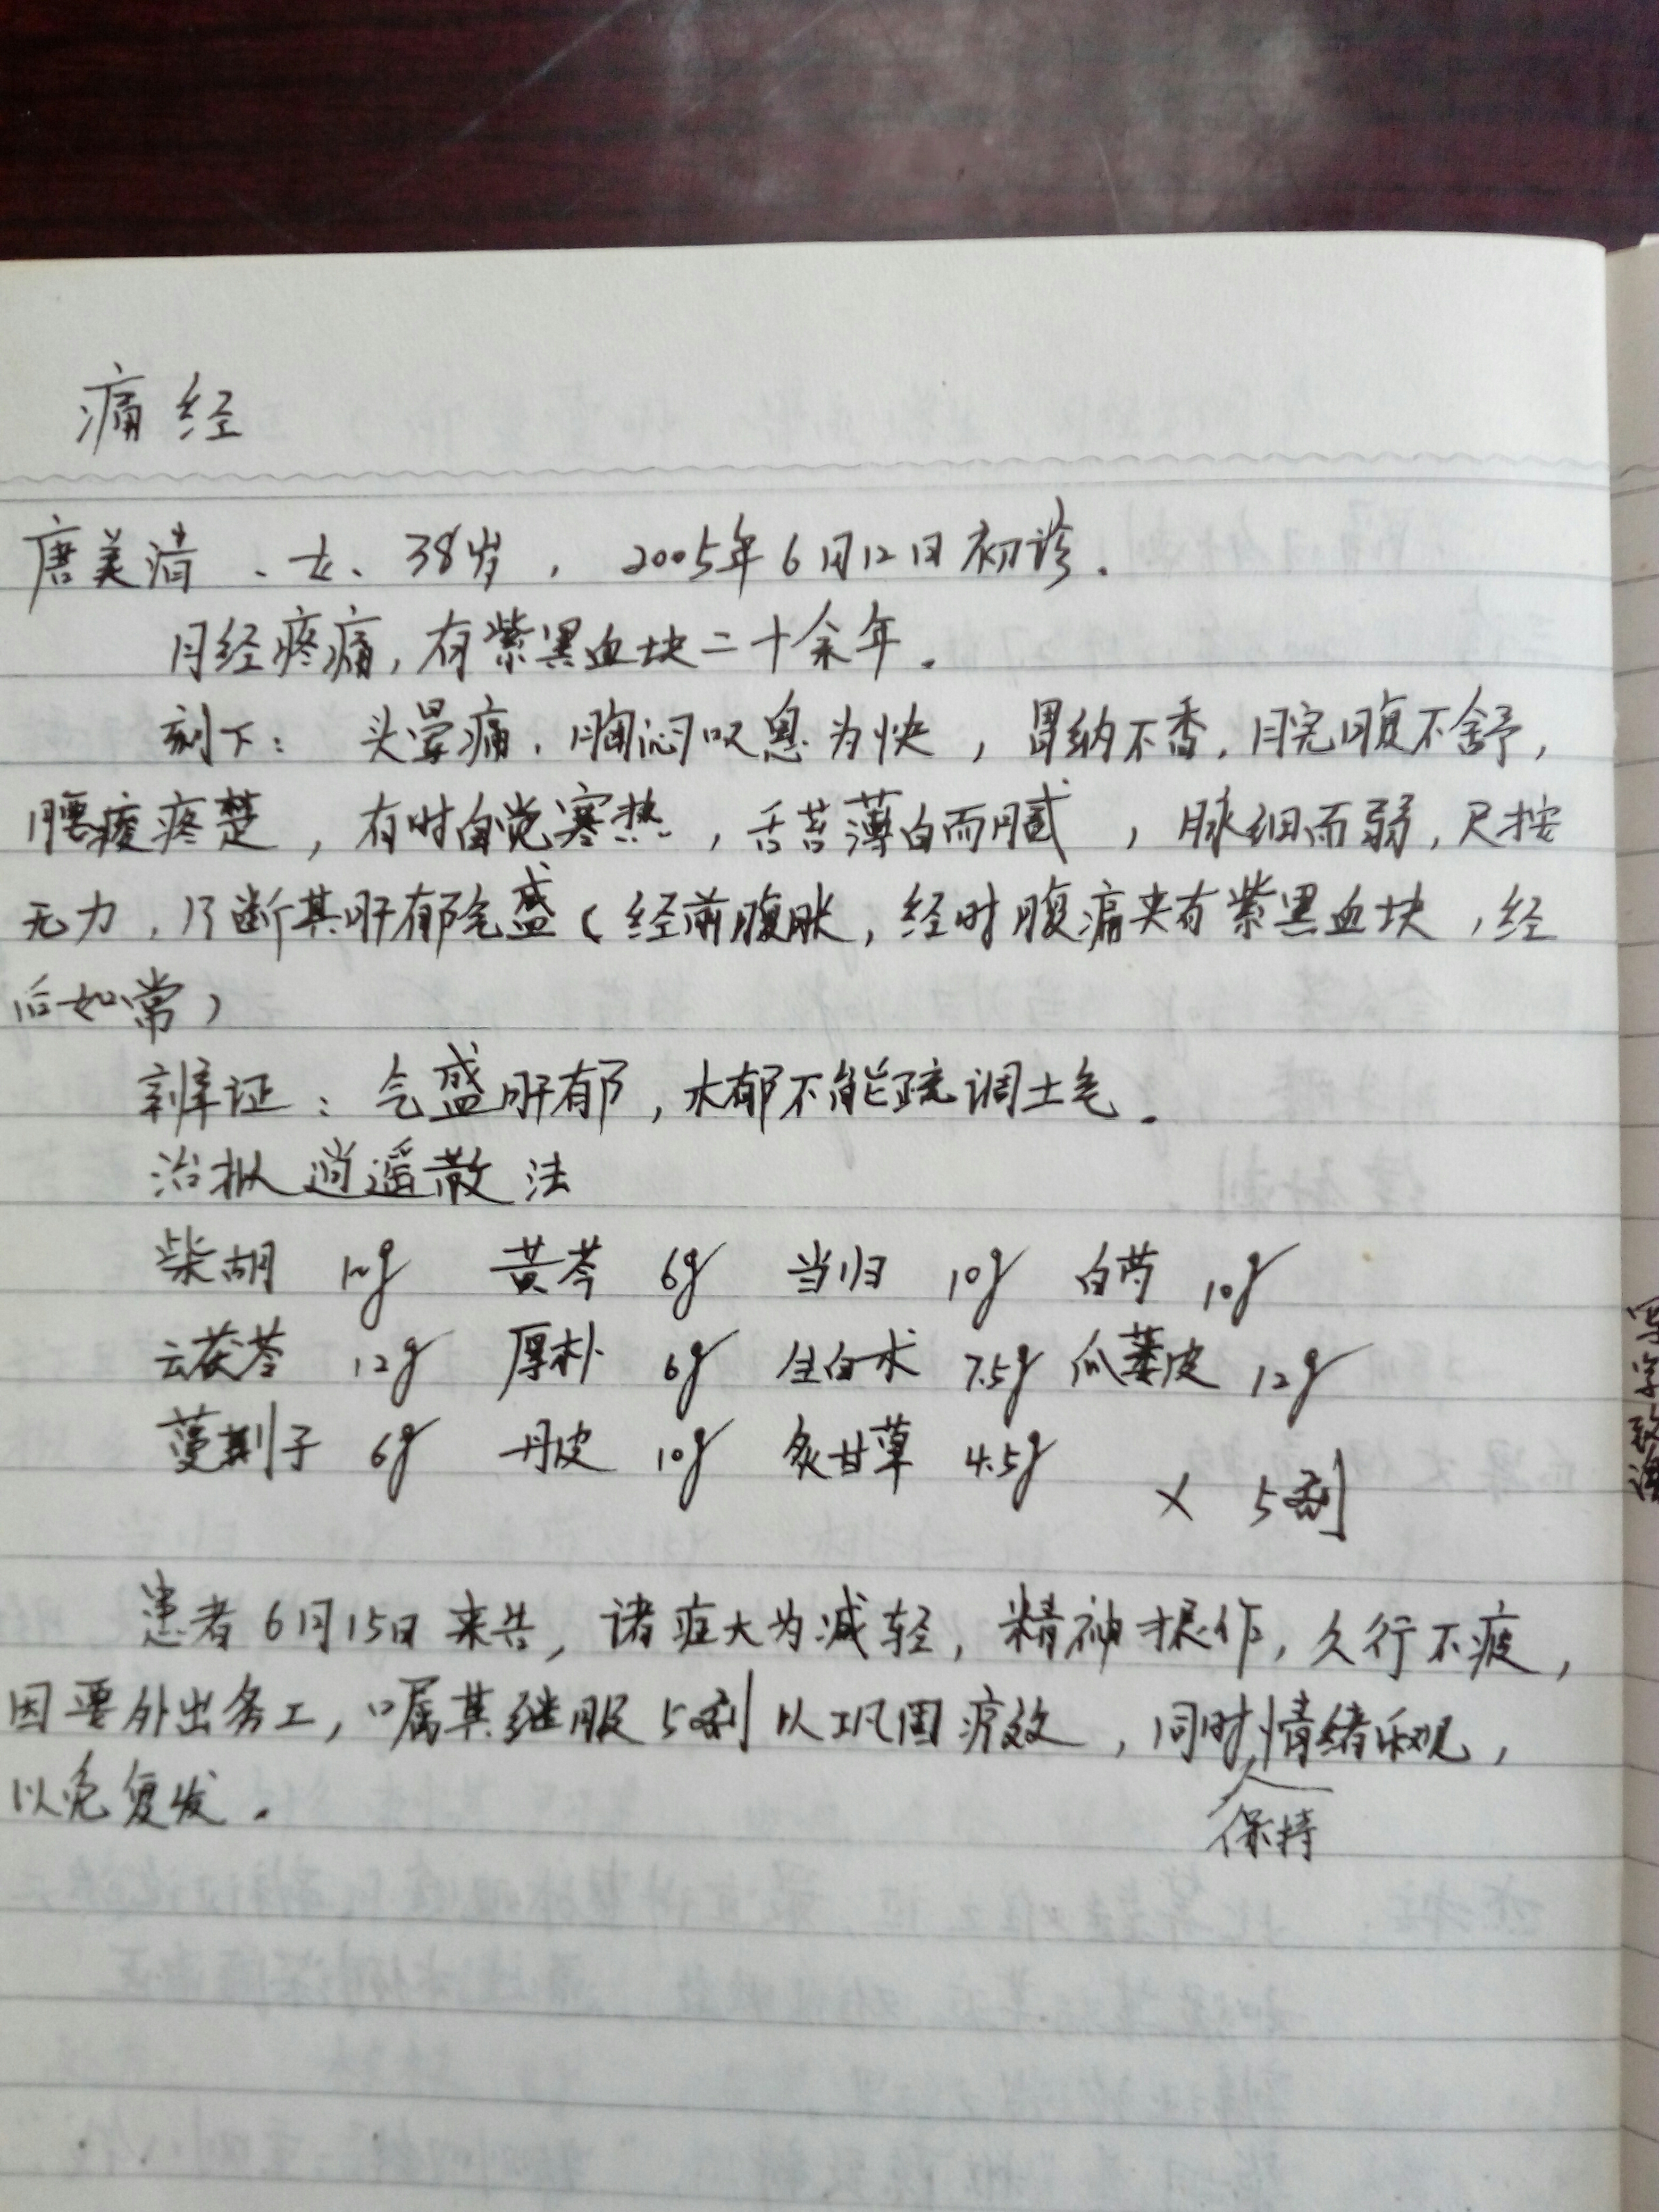 痛经
唐美清、女、38岁，2005年6月12日初诊.
月经疼痛，有紫黑血块二十余年.
刻下：头晕痛，胸闷叹息为快，胃纳不香，脘腹不舒，
腰痠疼楚，有时自觉寒热，舌苔薄白而腻，脉细而弱，尺按
无力，乃断其肝郁气盛（经前腹胀，经时腹痛夹有紫黑血块，经
后如常）
辨证：气盛肝郁，木郁不能疏调土气.
治拟逍遥散法
柴胡 10g 黄芩 6g 当归 10g 白芍 10g
云茯苓 12g 厚朴 6g 生白术 7.5g 瓜蒌皮 12g
蔓荆子 6g 丹皮 10g 炙甘草 4.5g
× 5剂
患者6月15日来告，诸症大为减轻，精神振作，久行不疲，
因要外出务工，嘱其继服5剂以巩固疗效，同时保持情绪乐观，
以免复发.